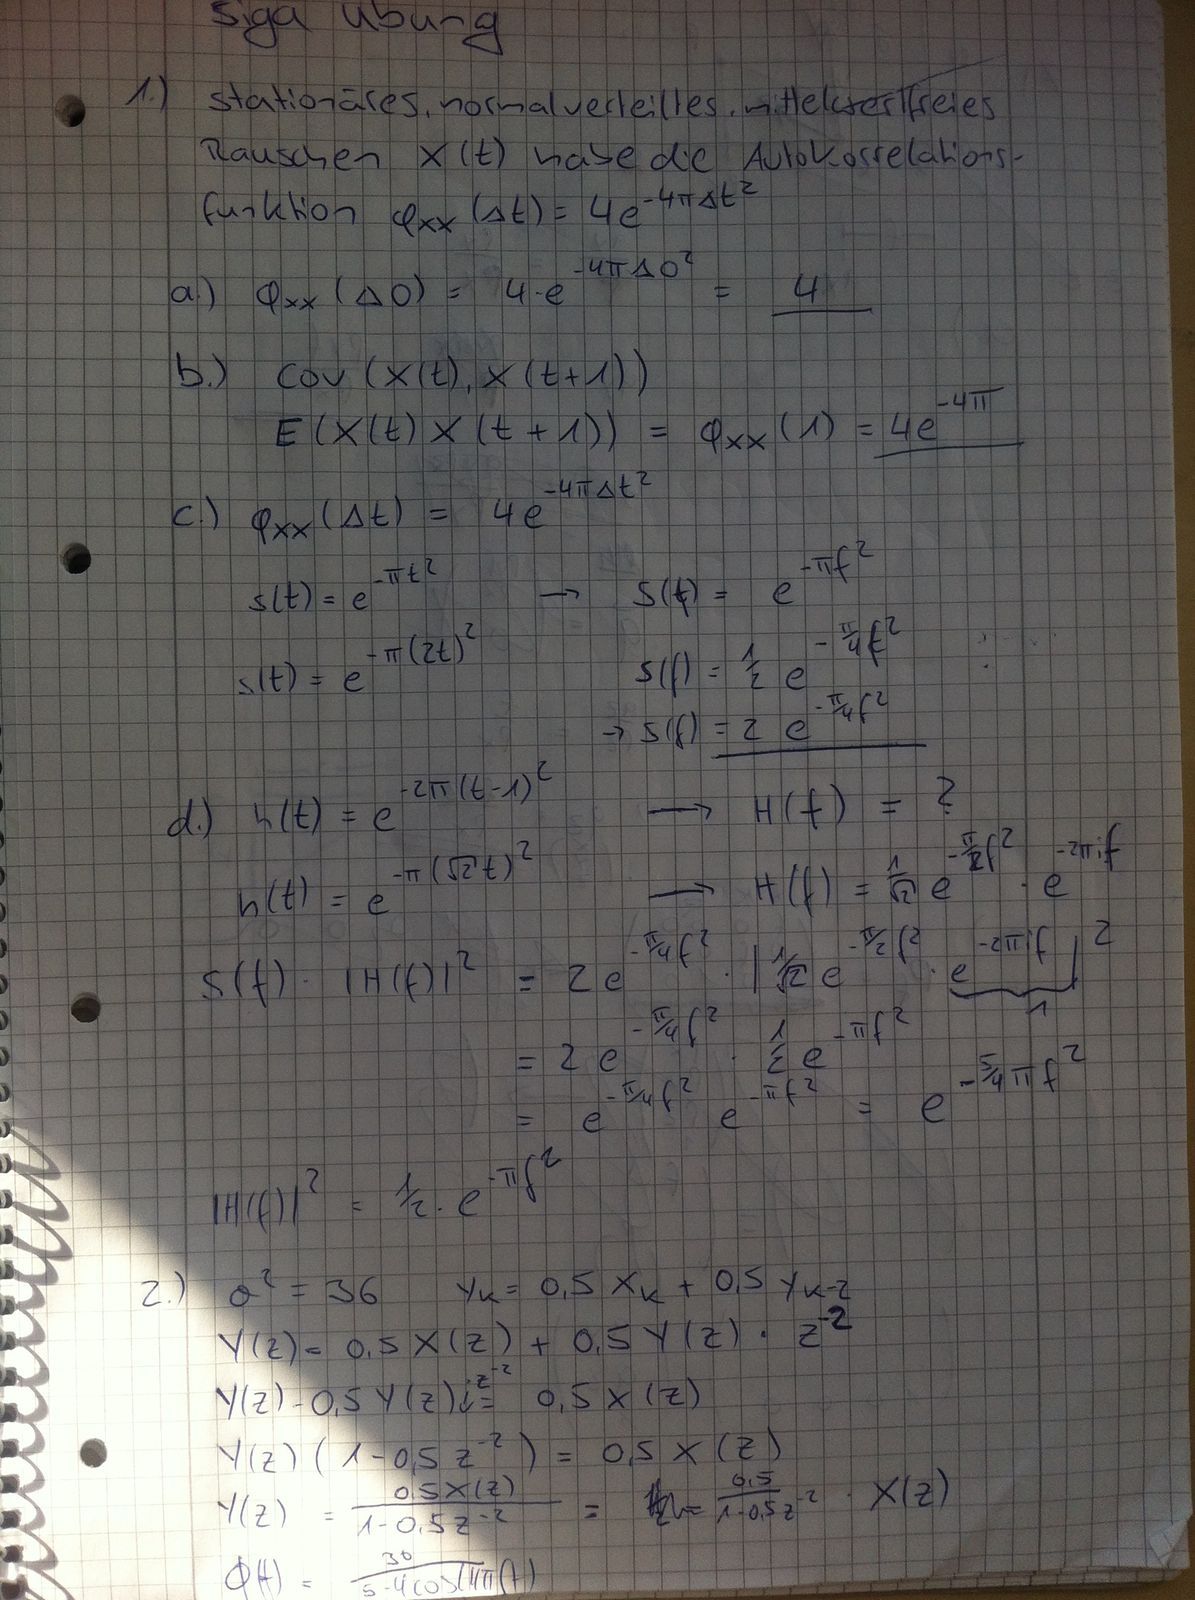 Siga Übung
1.) stationäres, normalverteiltes, mittelwertfreies
Rauschen X(t) habe die Autokorrelations-
funktion φxx(Δt) = 4e^(-4πΔt²)
a.) φxx(Δ0) = 4·e^(-4πΔ0²) = 4
b.) Cov(X(t), X(t+1))
E(X(t) X(t+1)) = φxx(1) = 4e^(-4π)
c.) φxx(Δt) = 4e^(-4πΔt²)
s(t) = e^(-πt²) → S(f) = e^(-πf²)
s(t) = e^(-π(2t)²) S(f) = 1/2 e^(-π/4 f²)
→ S(f) = 2 e^(-π/4 f²)
d.) h(t) = e^(-2π(t-1)²) → H(f) = ?
h(t) = e^(-π(√2t)²) → H(f) = 1/√2 e^(-π/2 f²) · e^(-2πif)
S(f) · |H(f)|² = 2e^(-π/4 f²) · |1/√2 e^(-π/2 f²) · e^(-2πif)|²
1
= 2e^(-π/4 f²) · 1/2 e^(-πf²)
= e^(-π/4 f²) e^(-πf²) = e^(-5/4 πf²)
|H(f)|² = 1/2 · e^(-πf²)
2.) σ² = 36 yk = 0,5 xk + 0,5 yk-2
Y(z) = 0,5 X(z) + 0,5 Y(z) · z^-2
Y(z) - 0,5 Y(z) z^-2 = 0,5 X(z)
Y(z) (1 - 0,5 z^-2) = 0,5 X(z)
Y(z) = 0,5 X(z) / (1 - 0,5z^-2) = = 0,5 / (1 - 0,5z^-2) · X(z)
= / (5-4cos(4πf))